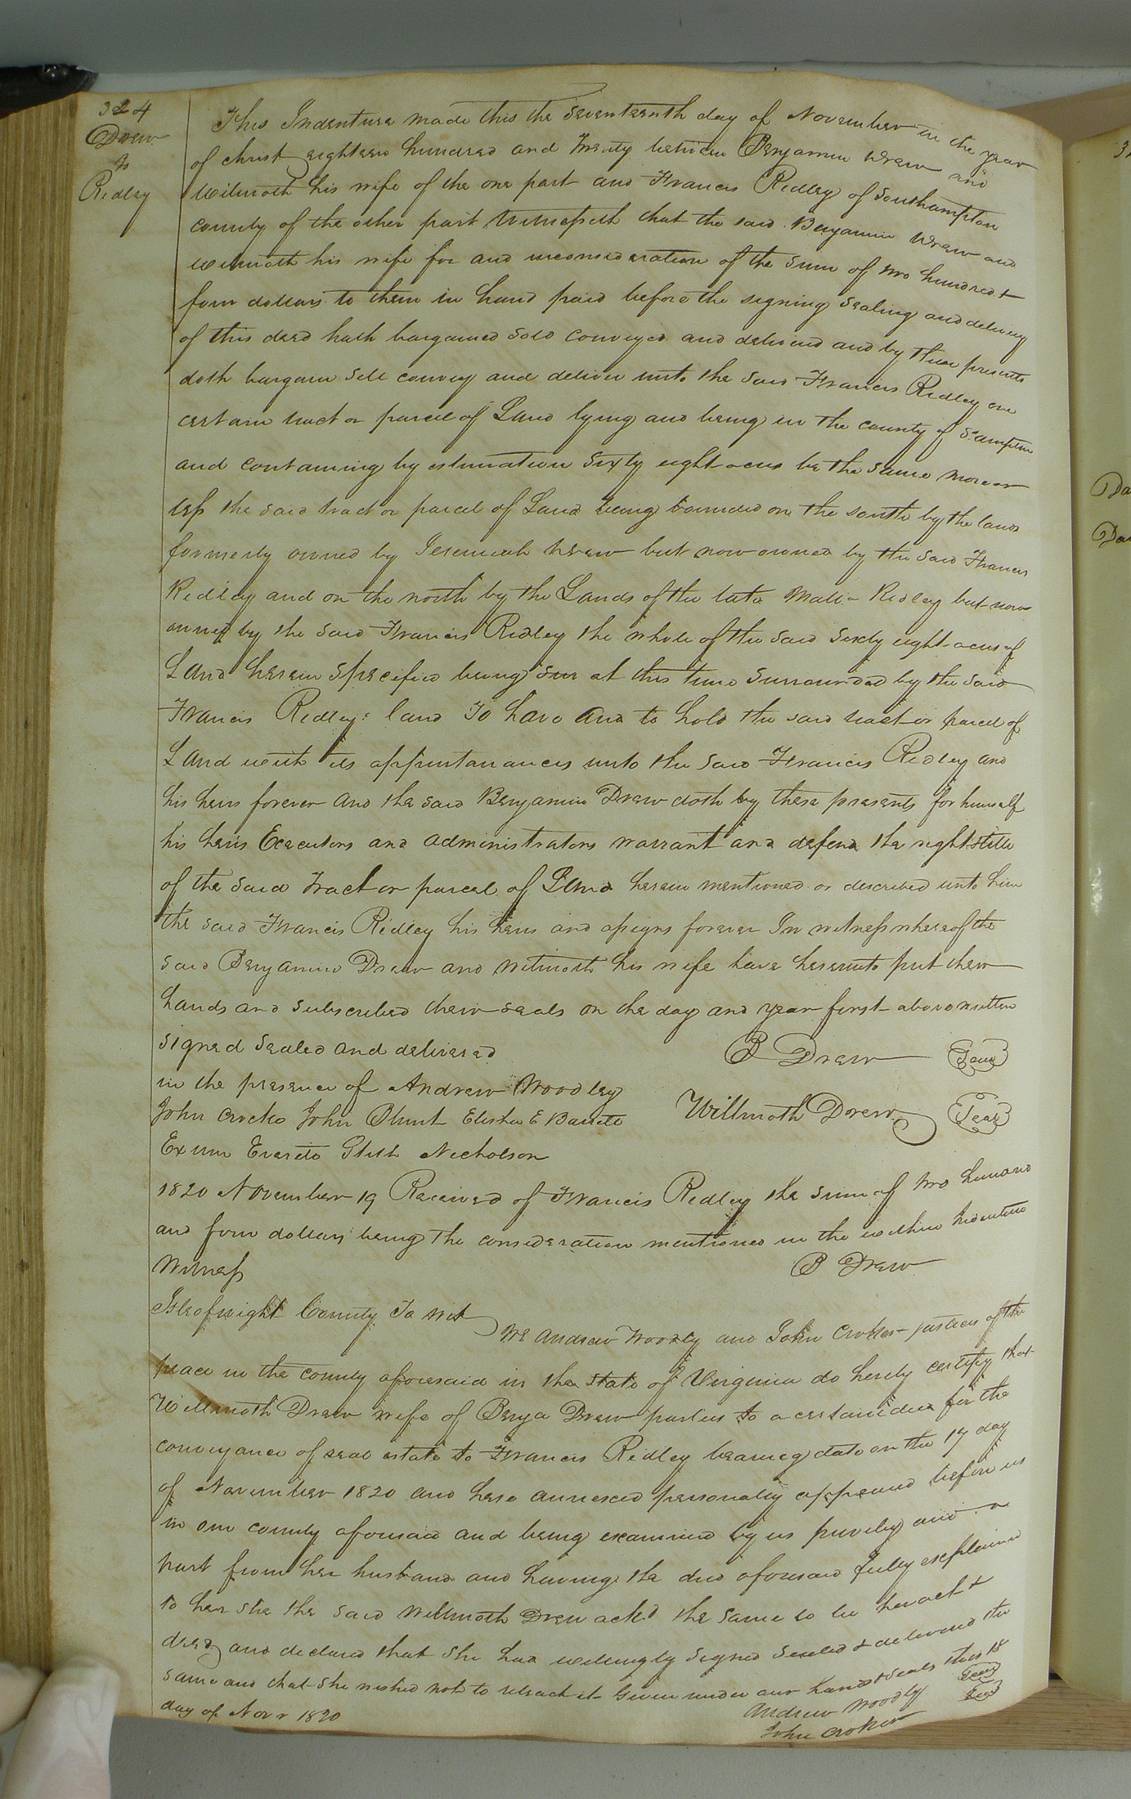 324
Drew
to
Ridley
This Indenture made this the seventeenth day of November in the year
of christ eighteen hundred and twenty between Benjamin Drew and
Wilmoth his wife of the one part and Francis Ridley of Southampton
county of the other part Witnesseth that the said Benjamin Drew and
Wilmoth his wife for and inconsideration of the sum of two hundred &
four dollars to them in hand paid before the signing sealing and delivery
of this deed hath bargained sold conveyed and delivered and by these presents
doth bargain sell convey and deliver unto the said Francis Ridley one
certain tract or parcel of Land lying and being in the county of S.ampton
and containing by estimation sixty eight acres be the same more or
less the said tract or parcel of Land being bounded on the south by the lands
formerly owned by Jeremiah Drew but now owned by the said Francis
Ridley and on the north by the Lands of the late Ridley but now
owned by the said Francis Ridley the whole of the said sixty eight acres of
Land herein specified being at this time surrounded by the said
Francis Ridleys land To have and to hold the said tract or parcel of
Land with its appurtanances unto the said Francis Ridley and
his heirs forever and the said Benjamin Drew doth by these presents for himself
his heirs Executors and administrators warrant and defend the right & title
of the said Tract or parcel of Land herein mentioned or described unto him
the said Francis Ridley his heirs and assigns forever In witness whereof the
said Benjamin Drew and Wilmoth his wife have hereunto put their
hands and subscribed their seals on the day and year first above written
signed sealed and delivered
B Drew Seal
in the presence of Andrew Woodley
John Crocker John Blunt Elisha E Barrett
Willmoth Drew Seal
Exum Everett Nicholson
1820 November 19 Received of Francis Ridley the sum of two hundred
and four dollars being the consideration mentioned in the within Indenture
Witness
B Drew
Isle of wight County To wit
We Andrew Woodley and John Crocker justices of the
peace in the county aforesaid in the state of Virginia do hereby certify that
Willmoth Drew wife of Benja Drew parties to a certain deed for the
conveyance of real estate to Francis Ridley bearing date on the 17 day
of November 1820 and here annexed personally appeared before us
in our county aforesaid and being examined by us privily and a
part from her husband and having the deed aforesaid fully explained
to her she the said Willmoth Drew ackd the same to be her act &
deed and declared that she had willingly signed sealed & delivered the
same and that she wished not to retract it Given under our hands & seals this 18
day of Novr 1820
Andrew Woodley Seal
John Crocker Seal